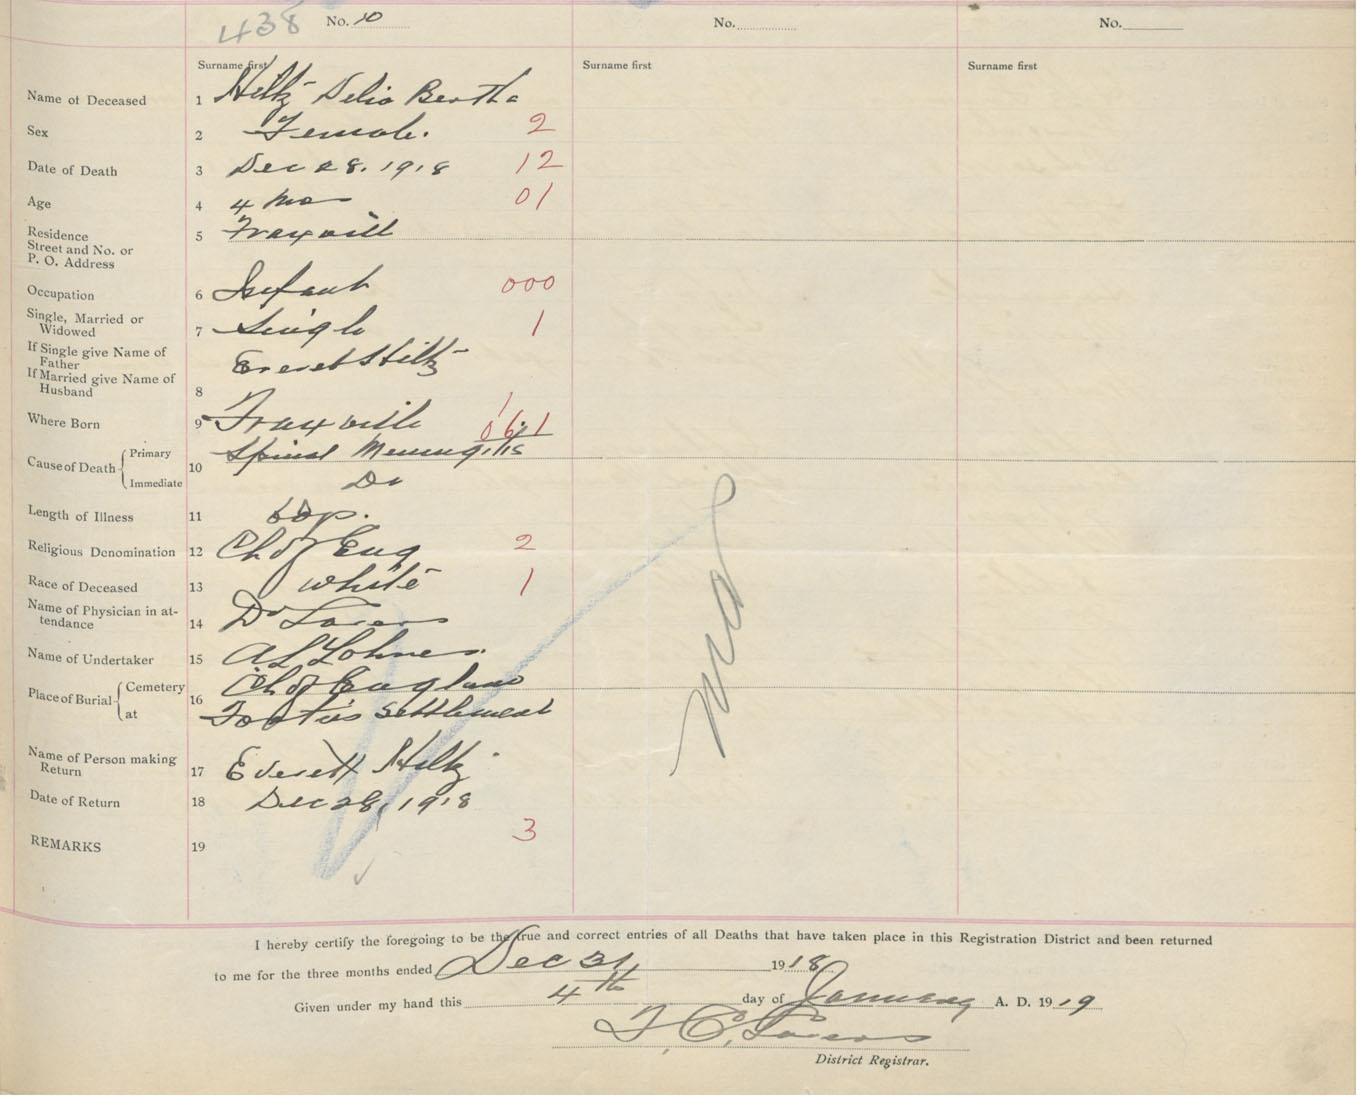 438
No. 10 No. No.
Surname first Surname first Surname first
Name of Deceased 1 Hiltz Delia Bertha
Sex 2 Female. 2
Date of Death 3 Dec 28. 1918 12
Age 4 4 mos 01
Residence
Street and No. or
P. O. Address 5 Fraxvill
Occupation 6 Infant 000
Single, Married or
Widowed 7 Single 1
If Single give Name of
Father Everet Hiltz
If Married give Name of
Husband 8
Where Born 9 Fraxville 061
Cause of Death Primary 10 Spinal Meningitis
Immediate Do
Length of Illness 11
Religious Denomination 12 Ch of Eng 2
Race of Deceased 13 White 1
Name of Physician in at-
tendance 14 Dr
Name of Undertaker 15 A L Lohnes.
Place of Burial Cemetery 16 Ch of England
at Settlement
Name of Person making
Return 17 Everett Hiltz
Date of Return 18 Dec 28, 1918
REMARKS 19 3
I hereby certify the foregoing to be the true and correct entries of all Deaths that have taken place in this Registration District and been returned
to me for the three months ended Dec 31 1918
Given under my hand this 4th day of January A. D. 1919
District Registrar.